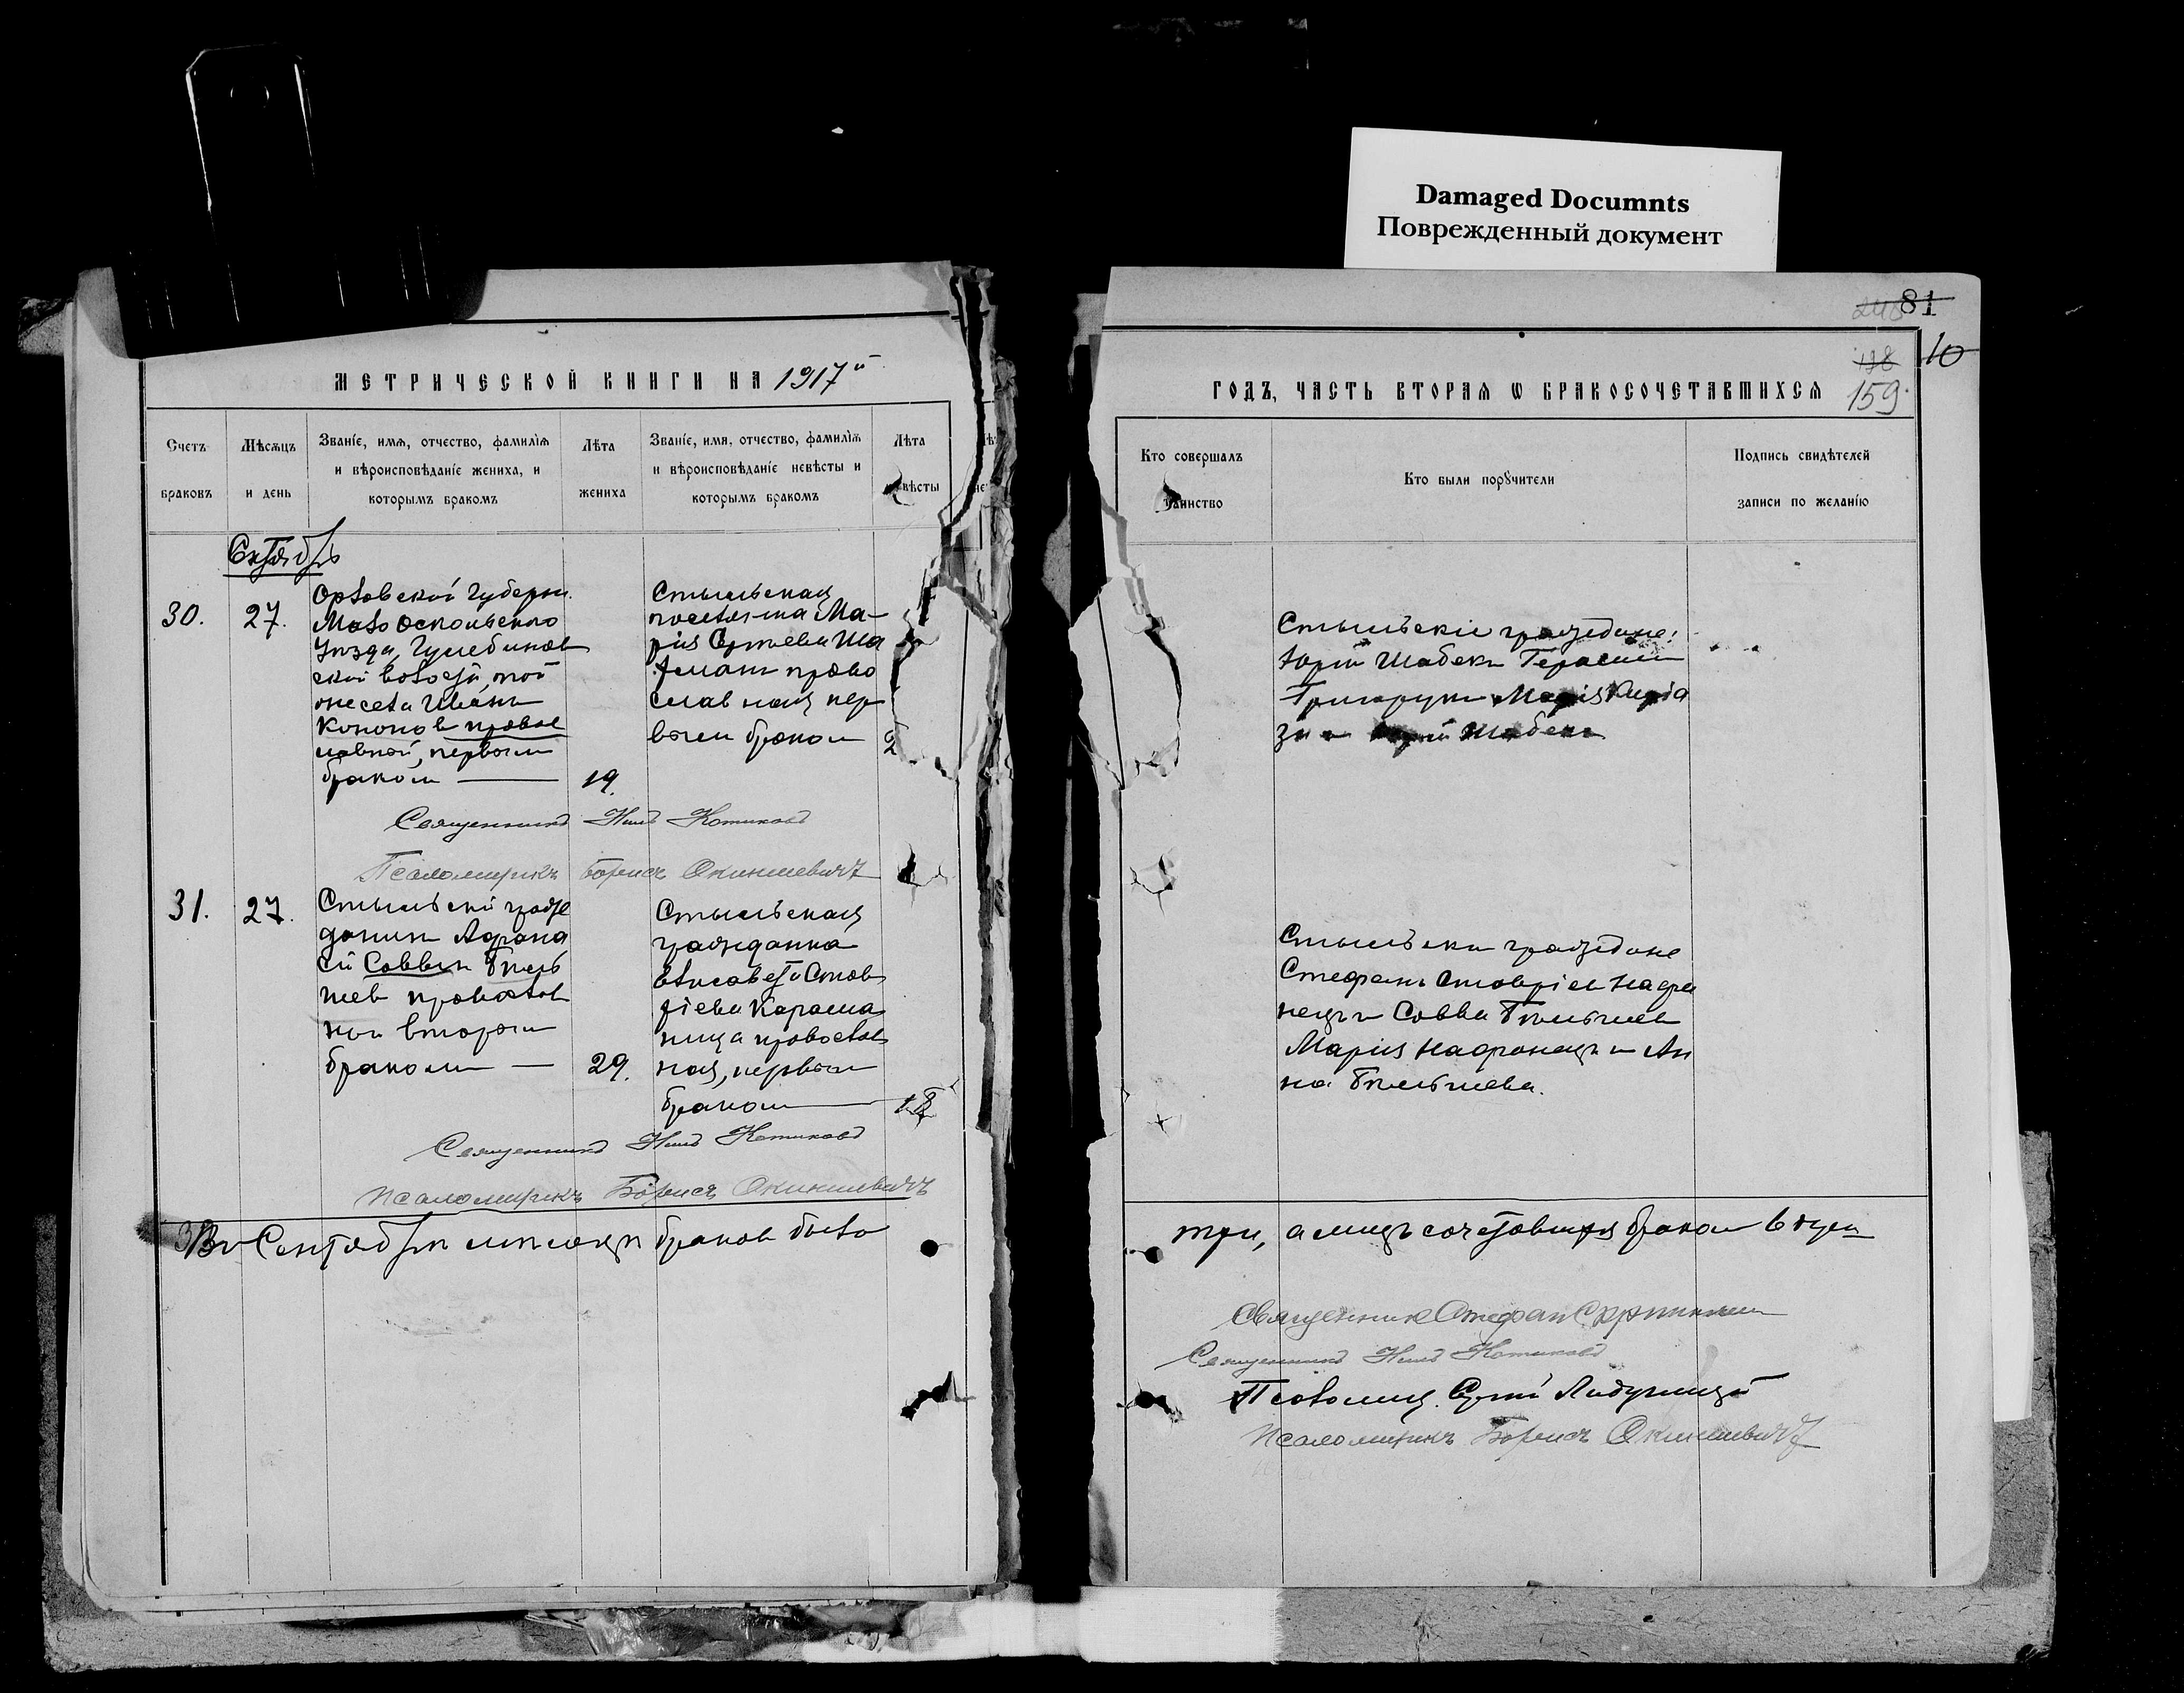 Damaged Documnts
Поврежденный документ
81
10
138
159.
МЕТРИЧЕСКОЙ КНИГИ НА 1917й
ГОДЪ, ЧАСТЬ ВТОРАЯ Ѡ БРАКОСОЧЕТАВШИХСЯ
Счетъ браковъ
Мѣсяцъ и день
Званіе, имя, отчество, фамилія и вѣроисповѣданіе жениха, и которымъ бракомъ
Лѣта жениха
Званіе, имя, отчество, фамилія и вѣроисповѣданіе невѣсты и которымъ бракомъ
Лѣта вѣсты
Кто совершалъ таинство
Кто были порꙋчители
Подпись свидѣтелей записи по желанію
30.
27.
Орловской губерн.
уѣзда,
ской волости, той
же села Иванъ
Кононовъ правос
лавной, первымъ
бракомъ —
19.
Стыльская
поселянка Ма-
рія Сергѣева Ша
право
славная пер
вымъ бракомъ
2
Стыльскіе граждане:
Юрій Шабекъ Герасимъ
Марія
Шабекъ
Священникъ Нилъ Котиковъ
Псаломщикъ Борисъ Окиншевичъ
31.
27.
Стыльскій граж
данинъ Афана
сій Саввинъ
православ
ный вторымъ
бракомъ —
29.
Стыльская
гражданка
Елисавета Став
ріева Карама
ница православ
ная, первымъ
бракомъ —
18
Стыльскіе граждане
Стефанъ Ставріевъ Нафа
нецъ и Савва
Марія Нафанецъ и Ан
на
Священникъ Нилъ Котиковъ
Псаломщикъ Борисъ Окиншевичъ
Въ Сентябрѣ мѣсяцѣ браковъ было
три, а лицъ сочетавшихся бракомъ 6 душъ
Священникъ Стефанъ
Священникъ Нилъ Котиковъ
Псаломщ. Сергѣй
Псаломщикъ Борисъ Окиншевичъ